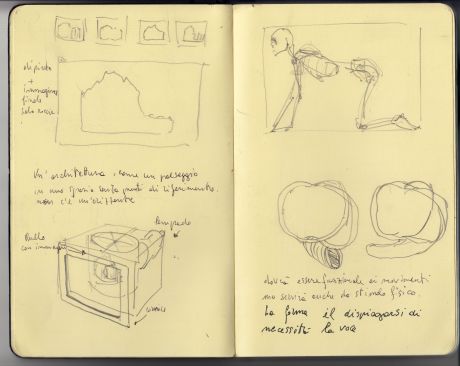 dipinto
+
immagine
finale
Un'architettura, come un paesaggio
in uno spazio senza punti di riferimento.
non c'è un'orizzonte
Rullo
con immagine
dovrà essere funzionale ai movimenti
ma servirà anche da stimolo fisico.
La forma è il dispiegarsi di
necessità la voce